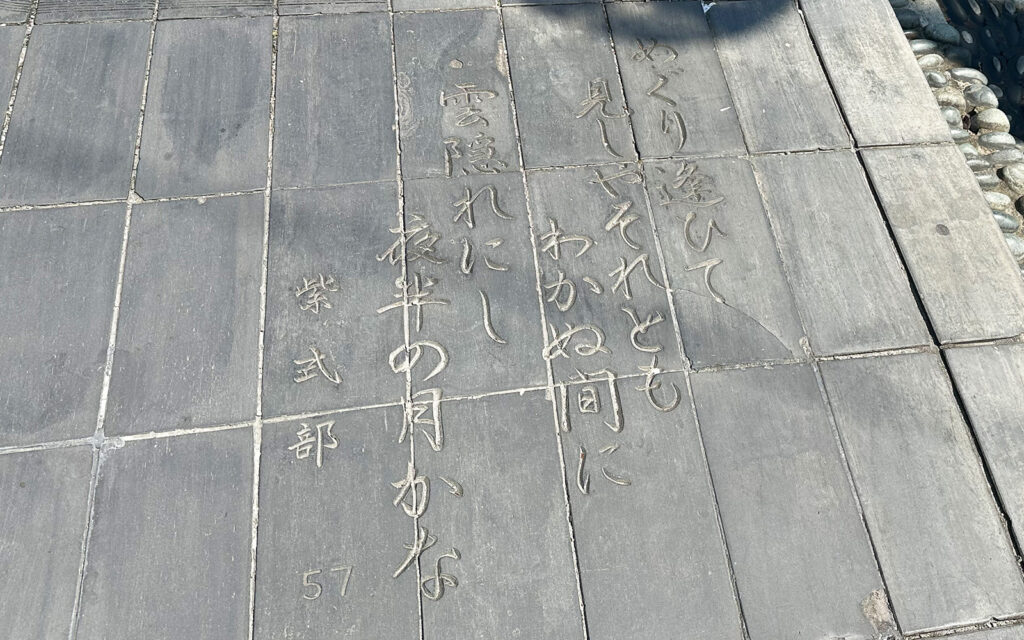 めぐり逢ひて
見しやそれとも
わかぬ間に
雲隠れにし
夜半の月かな
紫式部
57